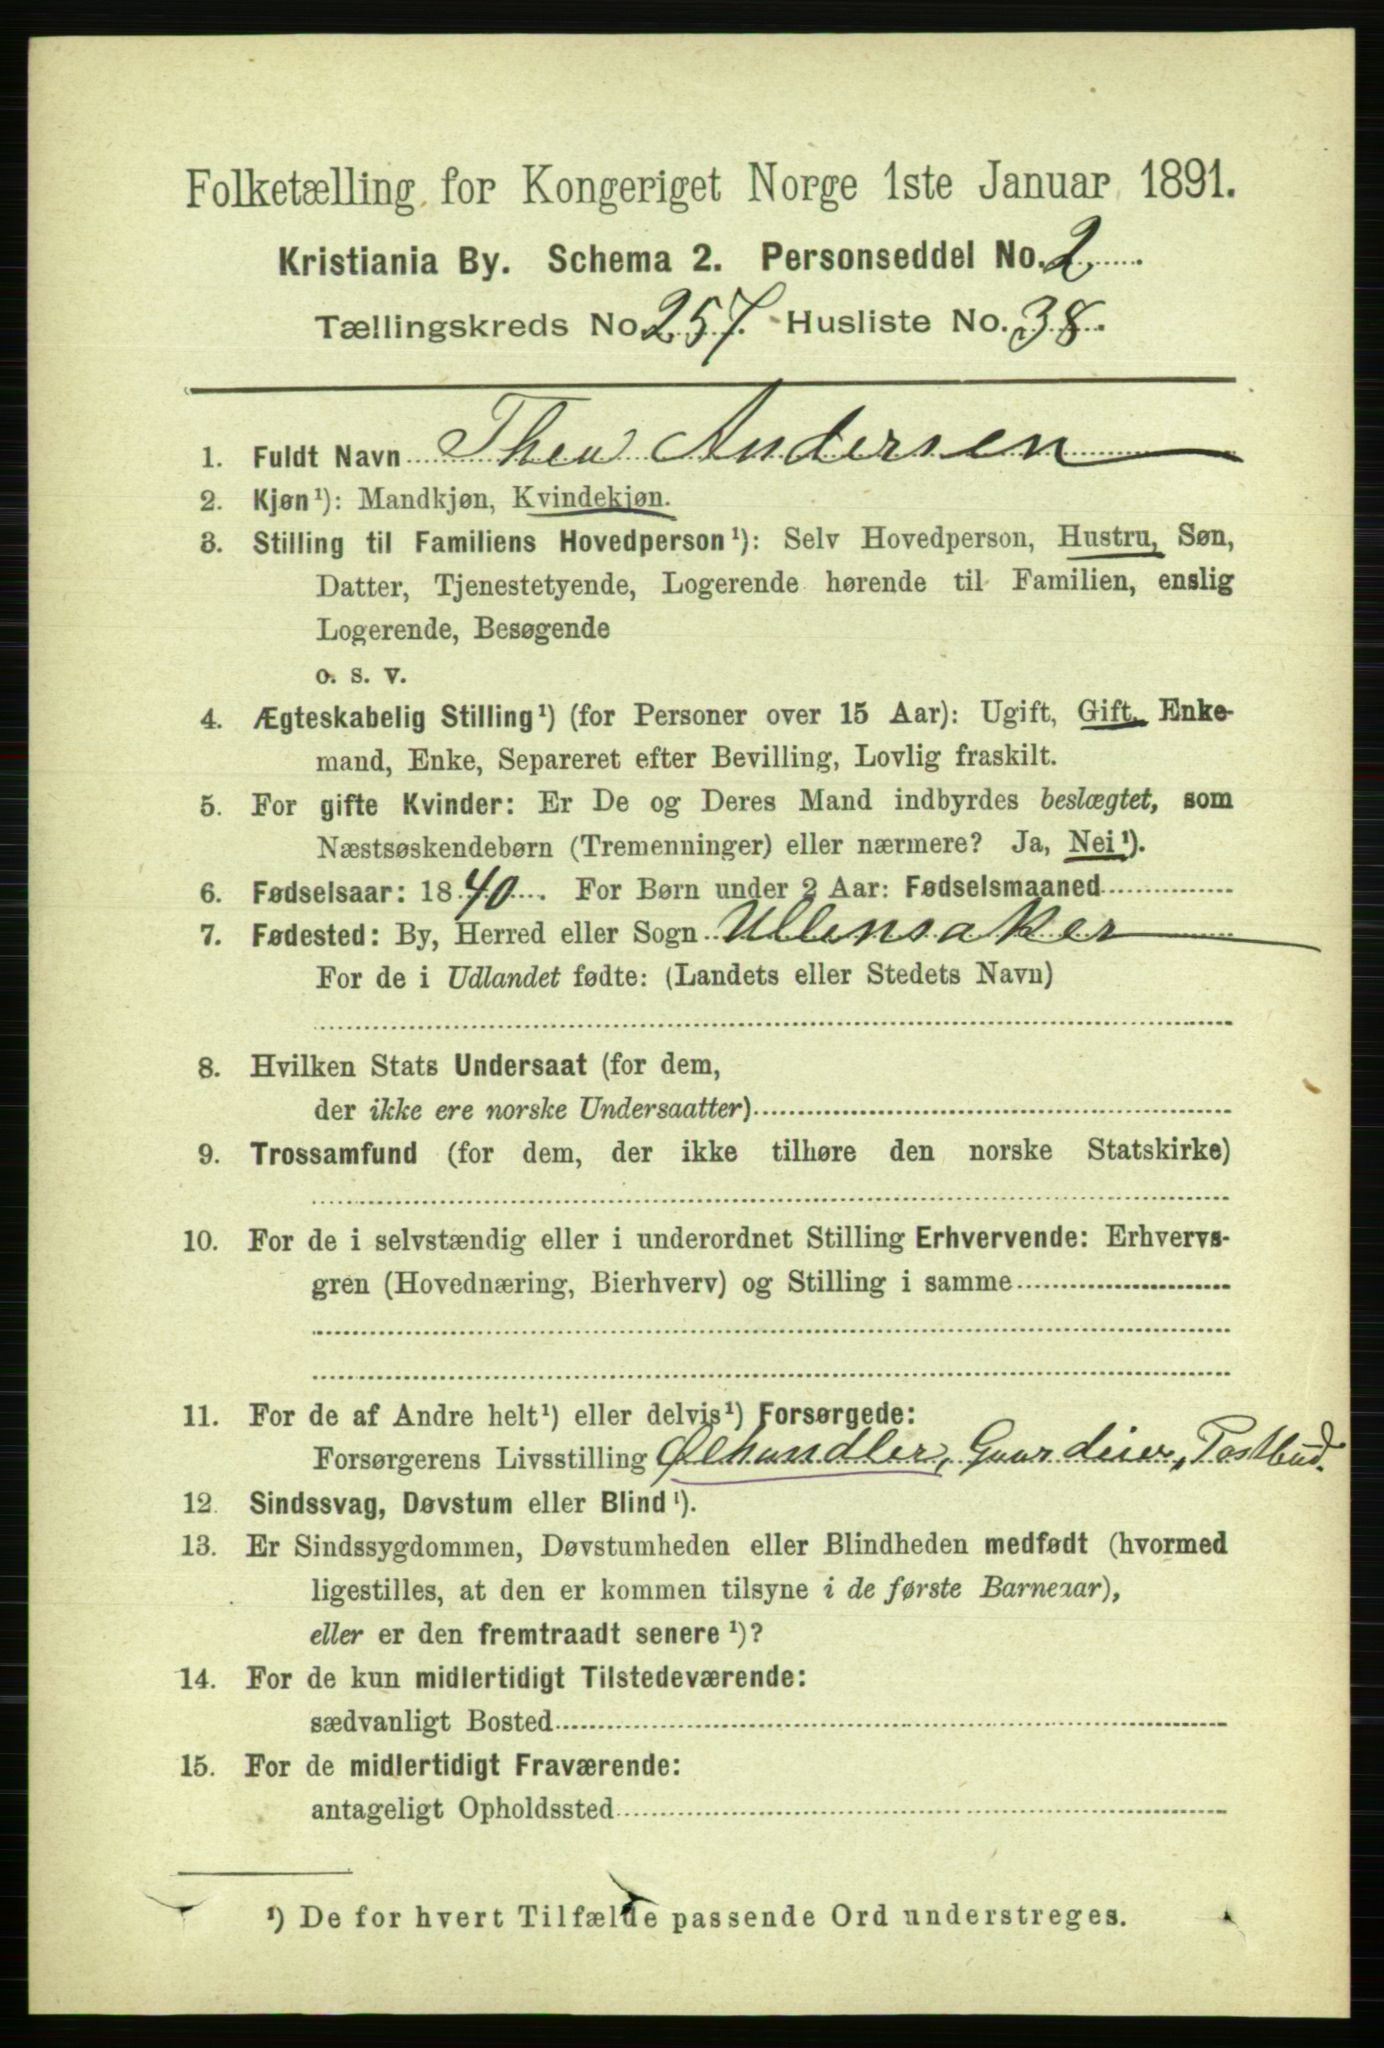 Folketælling for Kongeriget Norge 1ste Januar 1891.
Kristiania By. Schema 2. Personseddel No. 2
Tællingskreds No. 257. Husliste No. 38.
1. Fuldt Navn Thea Andersen
2. Kjøn¹): Mandkjøn, Kvindekjøn.
3. Stilling til Familiens Hovedperson¹): Selv Hovedperson, Hustru, Søn,
Datter, Tjenestetyende, Logerende hørende til Familien, enslig
Logerende, Besøgende
o. s. v.
4. Ægteskabelig Stilling¹) (for Personer over 15 Aar): Ugift, Gift, Enke-
mand, Enke, Separeret efter Bevilling, Lovlig fraskilt.
5. For gifte Kvinder: Er De og Deres Mand indbyrdes beslægtet, som
Næstsøskendebørn (Tremenninger) eller nærmere? Ja, Nei¹).
6. Fødselsaar: 1840. For Børn under 2 Aar: Fødselsmaaned
7. Fødested: By, Herred eller Sogn Ullensaker
For de i Udlandet fødte: (Landets eller Stedets Navn)
8. Hvilken Stats Undersaat (for dem,
der ikke ere norske Undersaatter)
9. Trossamfund (for dem, der ikke tilhøre den norske Statskirke)
10. For de i selvstændig eller i underordnet Stilling Erhvervende: Erhvervs-
gren (Hovednæring, Bierhverv) og Stilling i samme
11. For de af Andre helt¹) eller delvis¹) Forsørgede:
Forsørgerens Livsstilling Ølhandler, Gaardeier, Postbud.
12. Sindssvag, Døvstum eller Blind¹).
13. Er Sindssygdommen, Døvstumheden eller Blindheden medfødt (hvormed
ligestilles, at den er kommen tilsyne i de første Barneaar),
eller er den fremtraadt senere¹)?
14. For de kun midlertidigt Tilstedeværende:
sædvanligt Bosted
15. For de midlertidigt Fraværende:
antageligt Opholdssted
¹) De for hvert Tilfælde passende Ord understreges.